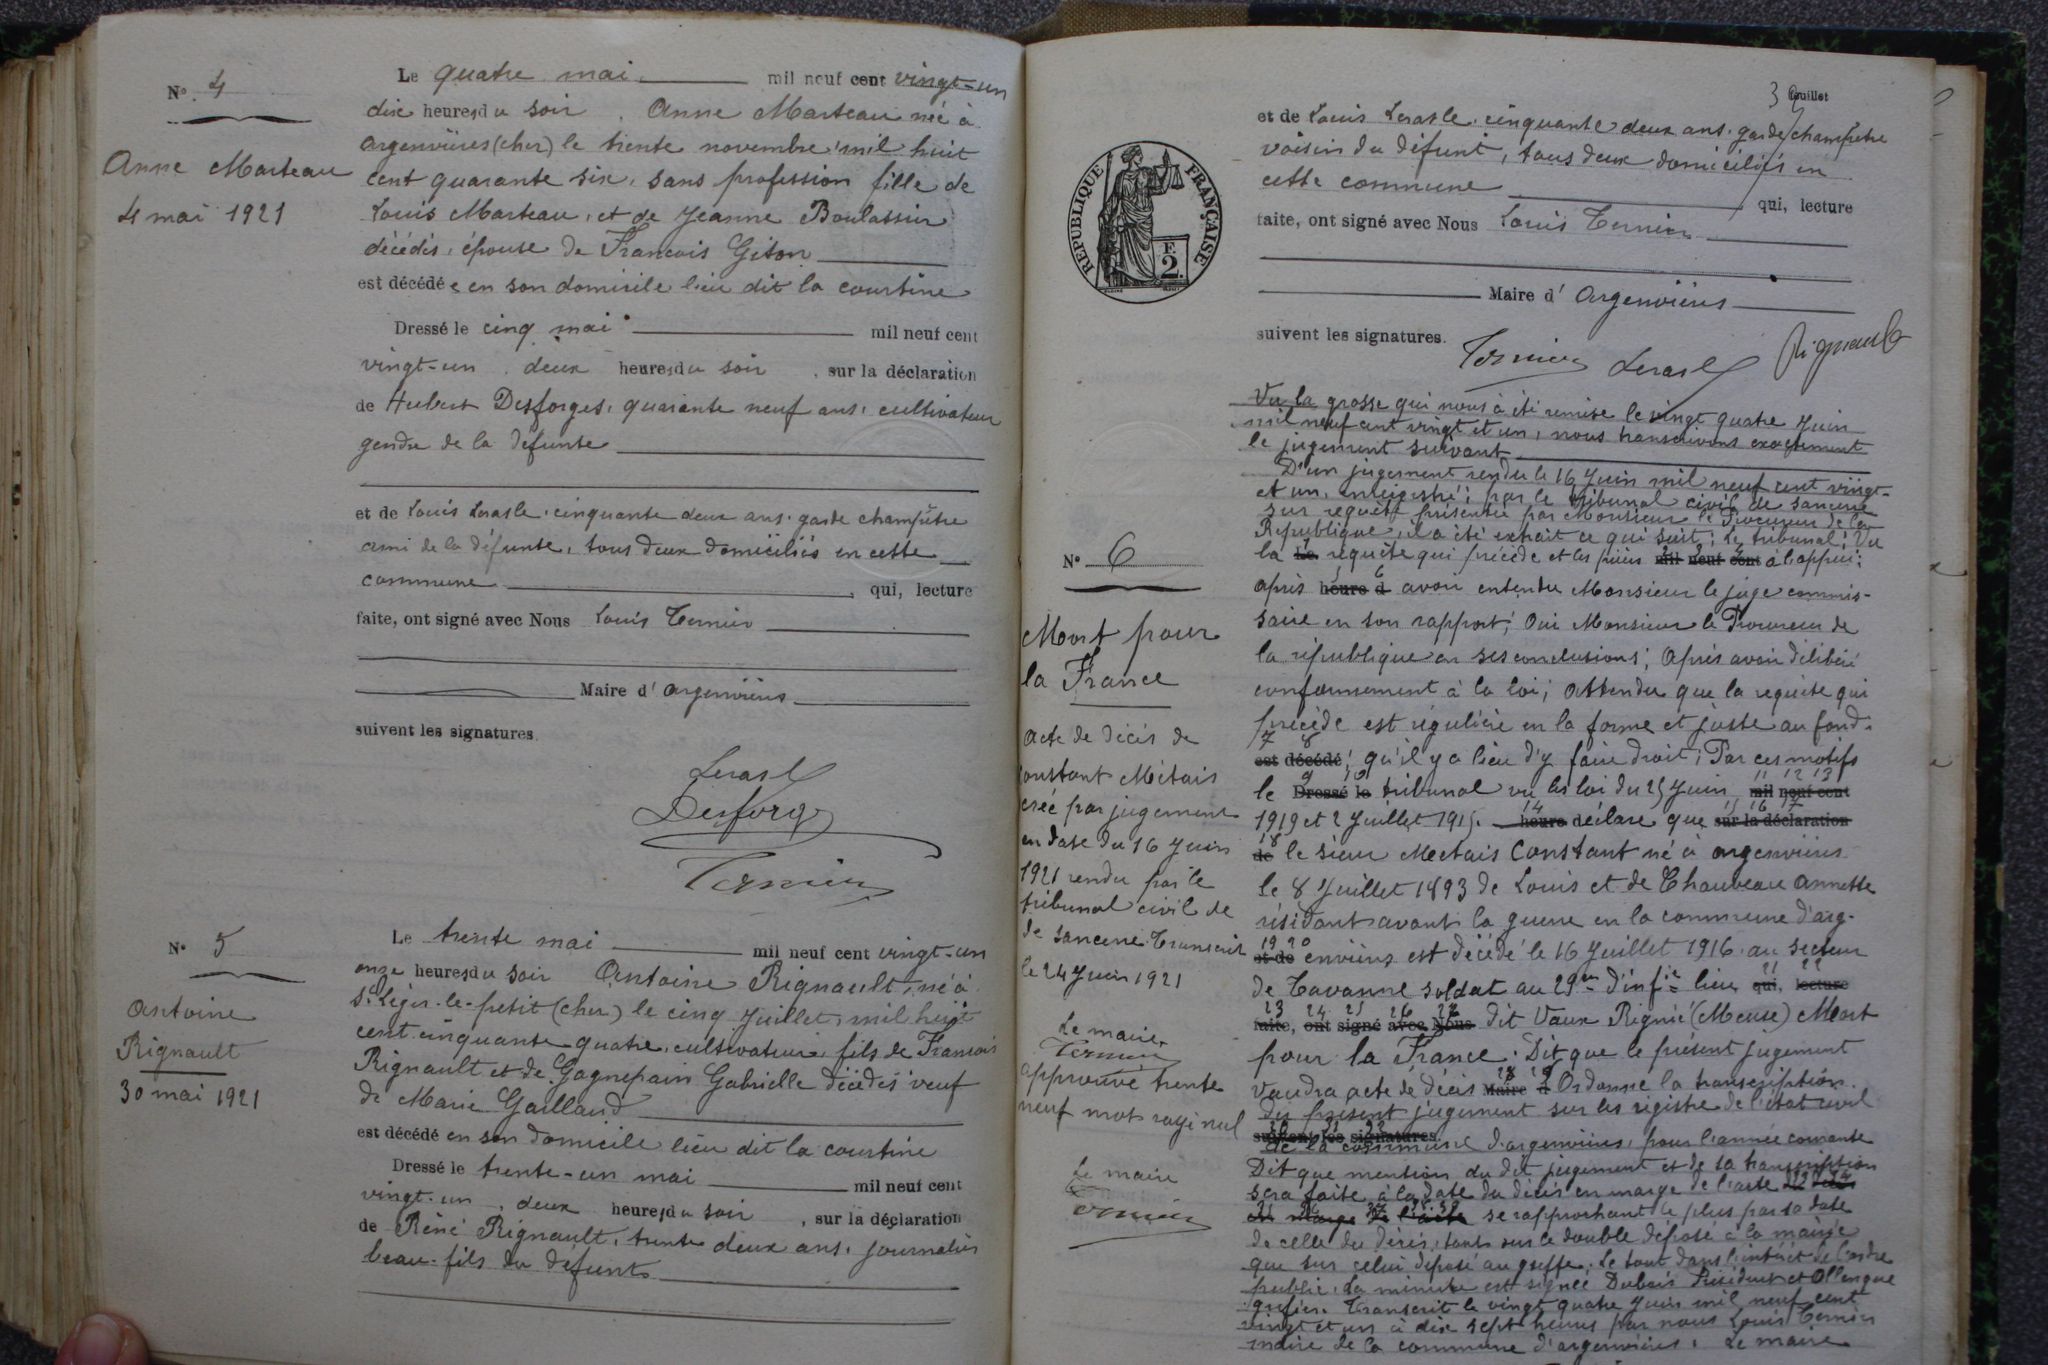 N° 4
Anne Marteau
4 mai 1921
Le quatre mai mil neuf cent vingt-un
dix heures du soir. Anne Marteau née à
Argenvières (cher) le trente novembre mil huit
cent quarante six, sans profession fille de
Louis Marteau, et de Jeanne Boulassier
décédés, épouse de Francois Giton
est décédée en son domicile lieu dit la courtine
Dressé le cinq mai mil neuf cent
vingt-un, deux heures du soir, sur la déclaration
de Hubert Desforges, quarante neuf ans, cultivateur
gendre de la défunte
et de Louis Lerasle, cinquante deux ans, garde champêtre
ami de la défunte, tous deux domiciliés en cette
commune, qui, lecture
faite, ont signé avec Nous Louis Ternier
Maire d'argenvières
suivent les signatures.
Lerasle
Desforges
Ternier
N° 5
Antoine
Rignault
30 mai 1921
Le trente mai mil neuf cent vingt-un
onze heures du soir Antoine Rignault, né à
St Léger-le-petit (cher) le cinq juillet, mil huit
cent cinquante quatre, cultivateur, fils de Francois
Rignault et de Gagnepain Gabrielle décédés veuf
de Marie Gaillard
est décédé en son domicile lieu dit la courtine
Dressé le trente-un mai mil neuf cent
vingt-un, deux heures du soir, sur la déclaration
de Réné Rignault, trente deux ans, journalier
beau-fils du défunt
feuillet
et de Louis Lerasle, cinquante deux ans, garde champêtre
voisin du défunt, tous deux domiciliés en
cette commune qui, lecture
faite, ont signé avec Nous Louis Ternier
REPUBLIQUE FRANÇAISE
F.
2.
Maire d'Argenvières
suivent les signatures.
Ternier Lerasle Rignault
N° 6
Mort pour
la France
acte de décès de
Constant Métais
créé par jugement
en date du 16 juin
1921 rendu par le
tribunal civil de
de Sancerre Transcrit
le 24 juin 1921
Le maire
Ternier
approuvé trente
neuf mots rayé nul
Le maire
Ternier
Vu la grosse qui nous à été remise le vingt quatre juin
mil neuf cent vingt et un, nous transcrivons exactement
le jugement suivant
D'un jugement rendu le 16 juin mil neuf cent vingt-
et un, enregistré; par le tribunal civil de Sancerre
sur requête présentée par Monsieur le Procureur de la
République, il a été extrait ce qui suit: Le tribunal; Vu
la requête qui précède et les pièces mil neuf cent à l'appui;
après heure d avoir entendu Monsieur le juge commis-
saire en son rapport; Oui Monsieur le Procureur de
la république en ses conclusions; Après avoir délibéré
conformement à la loi; Attendu que la requête qui
précède est régulière en la forme et juste au fond;
7 8
est décédé; qu'il y a lieu d'y faire droit; Par ces motifs
9 10 11 12 13
le Dressé le tribunal vu les loi du 25 juin mil neuf cent
14 15 16 17
1919 et 2 juillet 1915. heure déclare que sur la déclaration
18
de le sieur Metais Constant né à argenvières
le 8 juillet 1893 de Louis et de Chauveau Annette
résidant avant la guerre en la commune d'arg-
19 20
et de envières est décédé le 16 juillet 1916 au secteur
21 22
de Tavanne soldat au 29em d'infie lieu qui, lecture
23 24 25 26 27
faite, ont signé avec Nous dit Vaux Régnié (Meuse) Mort
pour la France. Dit que le présent jugement
28 29
vaudra acte de décès Maire d Ordonne la transcription
du présent jugement sur les registre de l'état civil
suivent les signatures.
de la commune d'argenvières, pour l'année courante
Dit que mention du dit jugement et de sa transcription
sera faite à la date du décès en marge de l'acte
en marge de l'acte se rapprochant le plus par sa date
de celle du décès, tant sur le double déposé à la mairie
que sur celui déposé au greffe. Le tout dans l'intérêt de l'ordre
public. La minute est signée Dubois Président et
greffier. Transcrit le vingt quatre juin mil neuf cent
vingt et un à dix sept heures par nous Louis Ternier
maire de la commune d'argenvières. Le maire